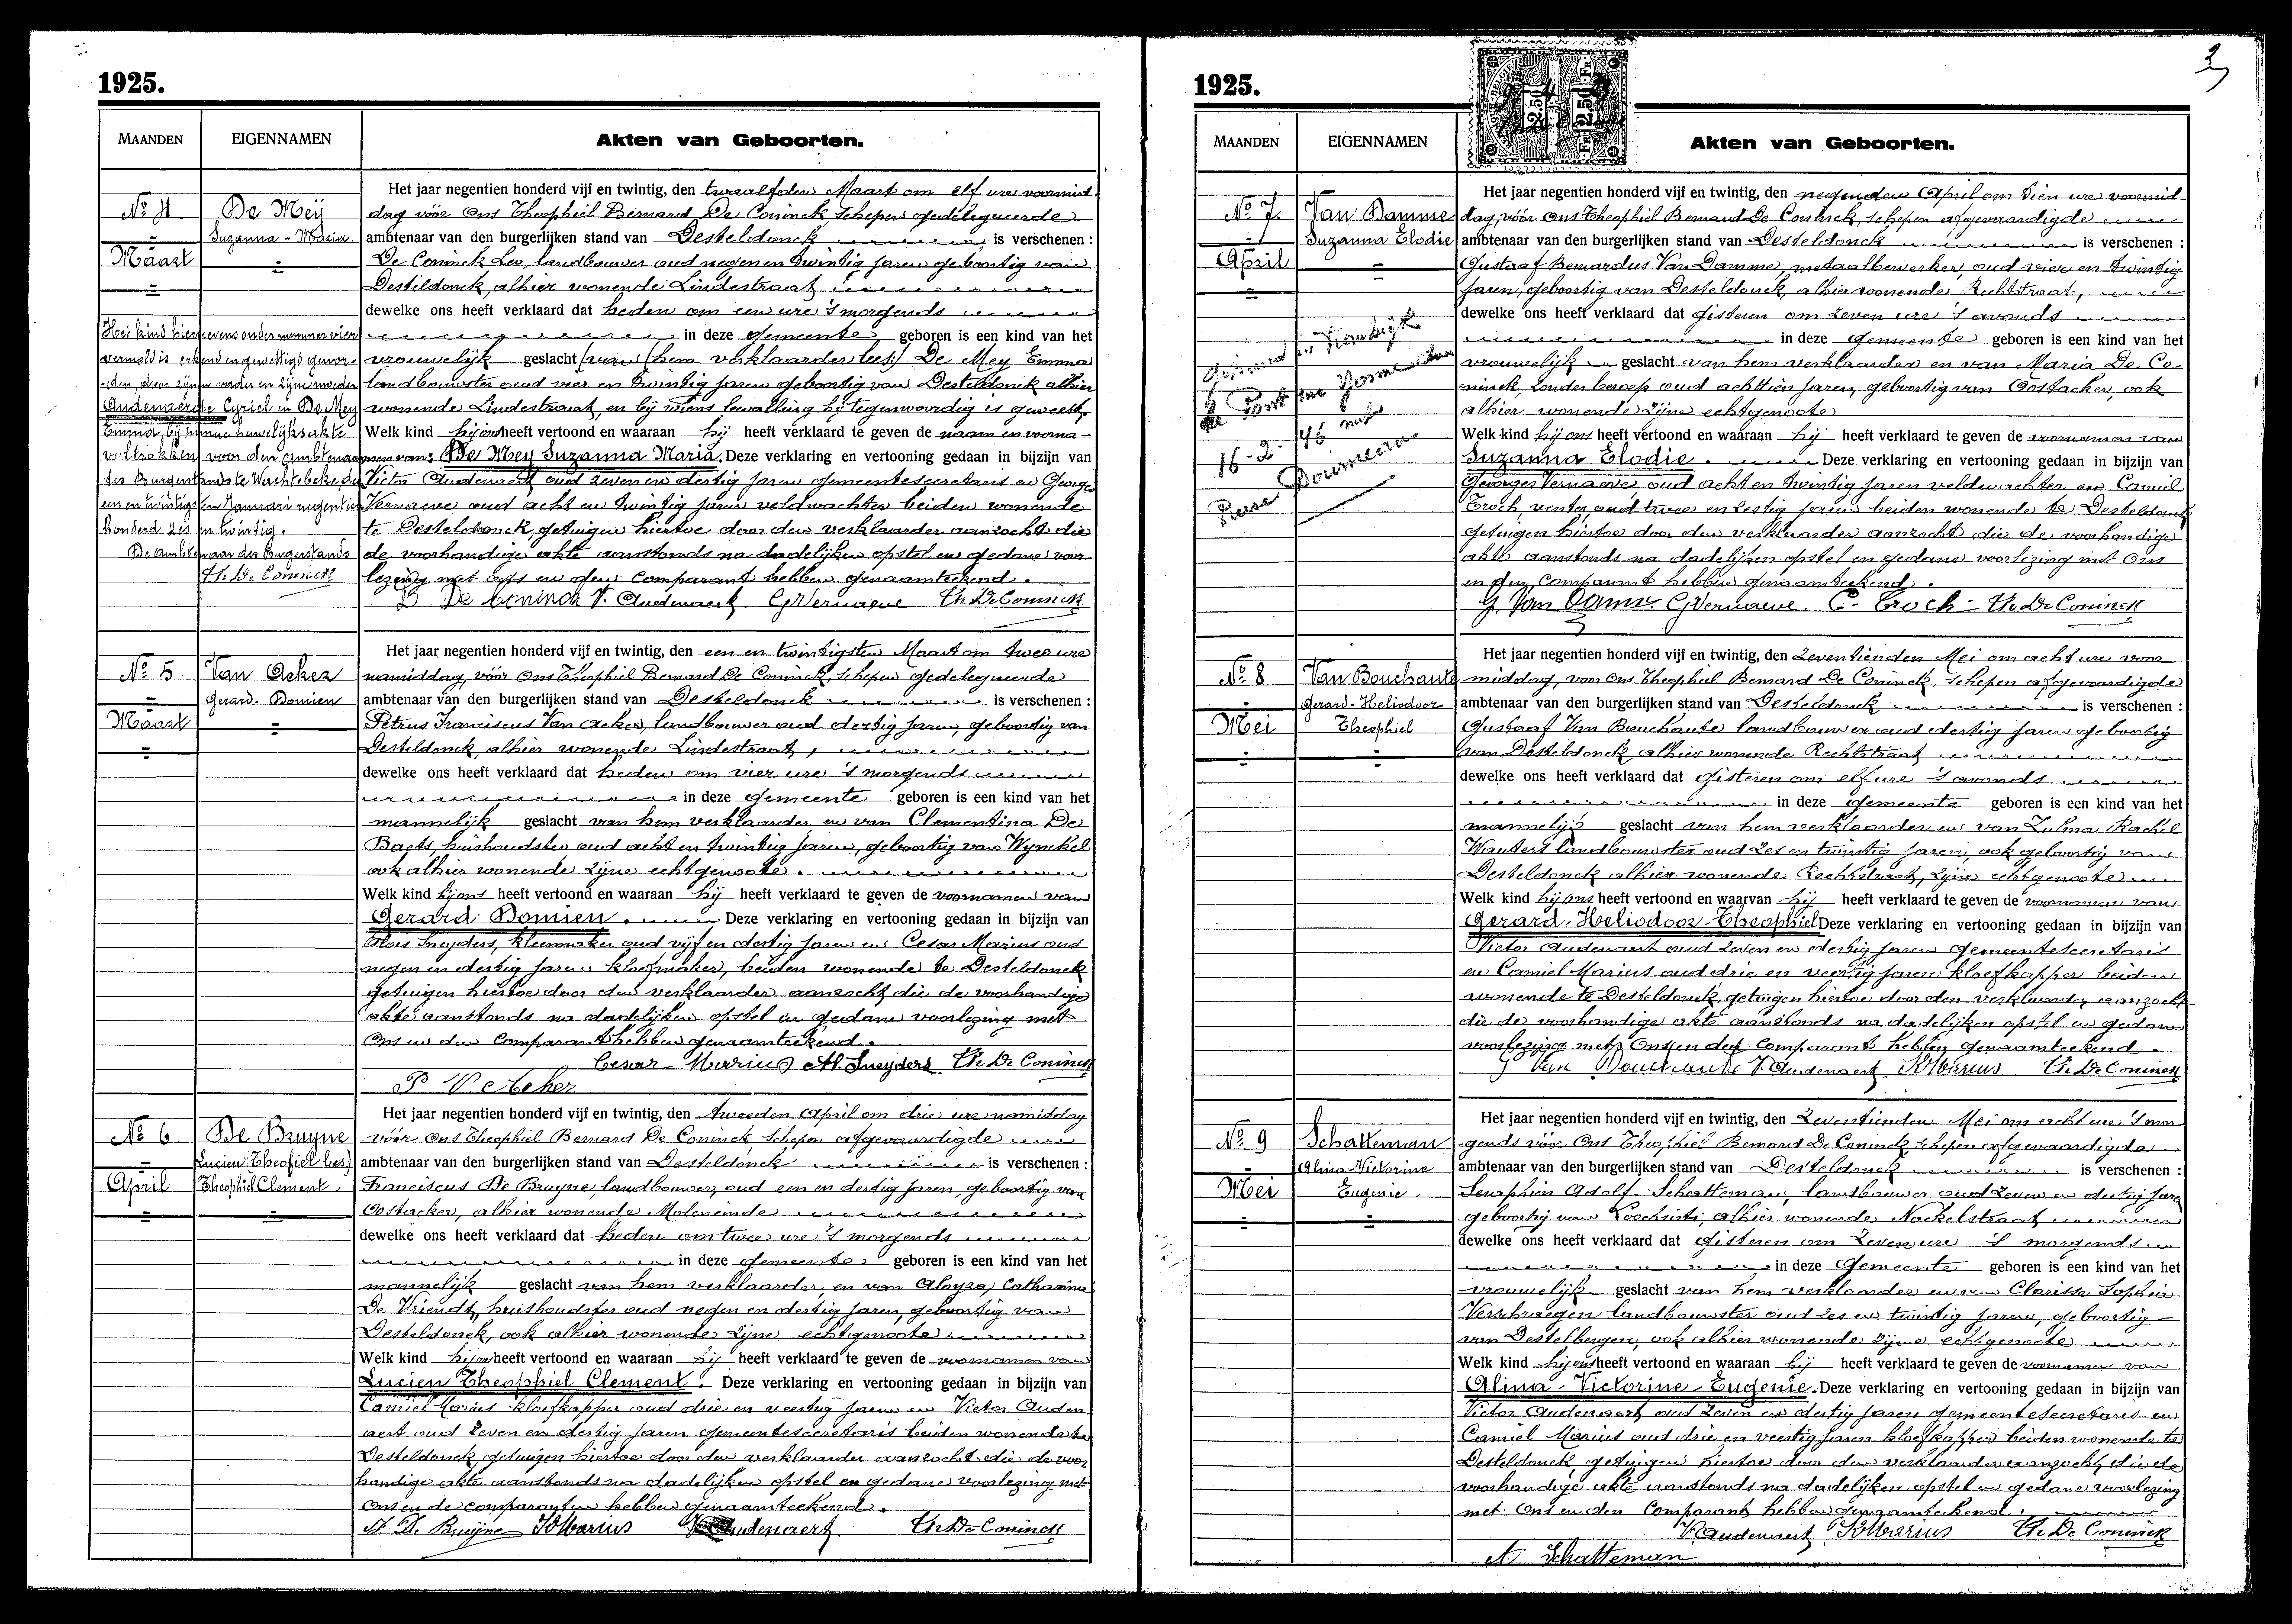 1925.
MAANDEN
EIGENNAMEN
Akten van Geboorten.
No 4.
Maart
De Meÿ
Suzanna - Maria.
Het kind hiernevens onder nummer vier
vermeld is erkend en gewettigd gewor-
den door zijnen vader en zijne moeder
Audenaerde Cyriel en De Mey
Emma bij hunne huwelijksakte
voltrokken voor den ambtenaar
des Burgerstands te Wachtebeke, den
een en twintigsten Januari negentien
honderd zes en twintig.
De ambtenaar des Burgerstands
Th. De Coninck
Het jaar negentien honderd vijf en twintig, den twaalfden Maart om elf ure voormid-
dag vóór Ons Theophiel Bernard De Coninck schepen gedelegueerde
ambtenaar van den burgerlijken stand van Desteldonck is verschenen :
De Coninck Leo, landbouwer oud negen en twintig jaren geboortig van
Desteldonck, alhier wonende Lindestraat
dewelke ons heeft verklaard dat heden om een ure 's morgends
in deze gemeente geboren is een kind van het
vrouwelijk geslacht (van) (hem verklaarder lees) De Mey Emma
landbouwster oud vier en twintig jaren geboortig van Desteldonck alhier
wonende Lindestraat, en bij wiens bevalling hij tegenwoordig is geweest,
Welk kind hij ons heeft vertoond en waaraan hij heeft verklaard te geven de naam en voorna-
men van: De Mey Suzanna Maria. Deze verklaring en vertooning gedaan in bijzijn van
Victor Audenaert oud zeven en dertig jaren gemeentesecretaris en George
Vernaeve oud acht en twintig jaren veldwachter beiden wonende
te Desteldonck, getuigen hiertoe door den verklaarder aanzocht die
de voorhandige akte aanstonds na dadelijken opstel en gedane voor-
lezing met ons en den Comparant hebben genaamteekend.
L De Coninck V. Audenaert. G Vernaeve Th. De Coninck
No 5.
Maart
Van Acker
Gerard - Domien
Het jaar negentien honderd vijf en twintig, den een en twintigsten Maart om twee ure
namiddag, vóór Ons Theophiel Bernard De Coninck, schepen gedelegueerde
ambtenaar van den burgerlijken stand van Desteldonck is verschenen :
Petrus Franciscus Van Acker, landbouwer oud dertig jaren, geboortig van
Desteldonck, alhier wonende Lindestraat,
dewelke ons heeft verklaard dat heden om vier ure 's morgends
in deze gemeente geboren is een kind van het
mannelijk geslacht van hem verklaarder en van Clementina De
Baets, huishoudster oud acht en twintig jaren, geboortig van Wynckel
ook alhier wonende zijne echtgenoote.
Welk kind hij ons heeft vertoond en waaraan hij heeft verklaard te geven de voornamen van
Gerard Domien. Deze verklaring en vertooning gedaan in bijzijn van
Alois Sneyders, kleermaker oud vijf en dertig jaren en Cesar Marius oud
negen en dertig jaren kloefmaker, beiden wonende te Desteldonck
getuigen hiertoe door den verklaarder aanzocht die de voorhandige
akte aanstonds na dadelijken opstel en gedane voorlezing met
Ons en den Comparant hebben genaamteekend.
Cesar Marrius Al. Sneyders. Th. De Coninck
P V Acker
No 6
April
De Bruyne
Lucien (Theofiel lees)
Theophiel Clement.
Het jaar negentien honderd vijf en twintig, den tweeden April om drie ure namiddag
vóór Ons Theophiel Bernard De Coninck, schepen afgevaardigde
ambtenaar van den burgerlijken stand van Desteldonck is verschenen :
Franciscus De Bruyne, landbouwer, oud een en dertig jaren geboortig van
Oostacker, alhier wonende Moleneinde
dewelke ons heeft verklaard dat heden om twee ure 's morgends
in deze gemeente geboren is een kind van het
mannelijk geslacht van hem verklaarder, en van Aloysa, Catharina
De Vriendt, huishoudster oud negen en dertig jaren, geboortig van
Desteldonck, ook alhier wonende zijne echtgenoote
Welk kind hij ons heeft vertoond en waaraan hij heeft verklaard te geven de voornamen van
Lucien Theophiel Clement. Deze verklaring en vertooning gedaan in bijzijn van
Camiel Marius kloefkapper oud drie en veertig jaren en Victor Auden-
aert oud zeven en dertig jaren gemeentesecretaris beiden wonende te
Desteldonck getuigen hiertoe door den verklaarder aanzocht die de voor-
handige akte aanstonds na dadelijken opstel en gedane voorlezing met
Ons en de comparanten hebben genaamteekend.
De Bruyne Marius V Audenaert Th. De Coninck
1925.
MAANDEN
EIGENNAMEN
Akten van Geboorten.
No 7.
April
Van Damme
Suzanna Elodie
16-2- 46
Het jaar negentien honderd vijf en twintig, den negenden April om tien ure voormid-
dag, vóór Ons Theophiel Bernard De Coninck, schepen afgevaardigde
ambtenaar van den burgerlijken stand van Desteldonck is verschenen :
Gustaaf Bernardus Van Damme, metaalbewerker, oud vier en twintig
jaren, geboortig van Desteldonck, alhier wonende Rechtstraat,
dewelke ons heeft verklaard dat gisteren om zeven ure 's avonds
in deze gemeente geboren is een kind van het
vrouwelijk geslacht van hem verklaarder en van Maria De Co-
ninck, zonder beroep oud achttien jaren, geboortig van Oostacker, ook
alhier wonende zijne echtgenoote
Welk kind hij ons heeft vertoond en waaraan hij heeft verklaard te geven de voornamen van
Suzanna Elodie. Deze verklaring en vertooning gedaan in bijzijn van
Georges Vernaeve oud acht en twintig jaren veldwachter en Camiel
Troch, oud twee en zestig jaren beiden wonende te Desteldonck
getuigen hiertoe door den verklaarder aanzocht die de voorhandige
akte aanstonds na dadelijken opstel en gedane voorlezing met Ons
en den Comparant hebben genaamteekend.
G. Van Damme G Vernaeve. C. Troch - Th. De Coninck
No 8
Mei
Van Bouchaute
Gerard - Heliodoor
Theophiel
Het jaar negentien honderd vijf en twintig, den Zeventienden Mei om acht ure voor-
middag, voor Ons Theophiel Bernard De Coninck, schepen afgevaardigde
ambtenaar van den burgerlijken stand van Desteldonck is verschenen :
Gustaaf Van Bouchaute landbouwer oud dertig jaren geboortig
van Desteldonck, alhier wonende Rechtstraat
dewelke ons heeft verklaard dat gisteren om elf ure 's avonds
in deze gemeente geboren is een kind van het
mannelijk geslacht van hem verklaarder en van Zulma Rachel
Wauters landbouwster oud zes en twintig jaren, ook geboortig van
Desteldonck alhier wonende Rechtstraat, zijne echtgenoote
Welk kind hij ons heeft vertoond en waarvan hij heeft verklaard te geven de voornamen van
Gerard - Heliodoor - Theophiel Deze verklaring en vertooning gedaan in bijzijn van
Victor Audenaert oud zeven en dertig jaren gemeentesecretaris
en Camiel Marius oud drie en veertig jaren kloefkapper beiden
wonende te Desteldonck, getuigen hiertoe door den verklaarder aanzocht
die de voorhandige akte aanstonds na dadelijken opstel en gedane
voorlezing met Ons en den Comparant hebben genaamteekend.
G Van Bouchaute V. Audenaert Marius Th. De Coninck
No 9
Mei
Schatteman
Alina - Victorine
Eugenie.
Het jaar negentien honderd vijf en twintig, den Zeventienden Mei om acht ure 's mor-
gends vóór Ons Theophiel Bernard De Coninck schepen afgevaardigde
ambtenaar van den burgerlijken stand van Desteldonck is verschenen :
Seraphien Adolf Schatteman, landbouwer oud zeven en dertig jaren
geboortig van Loochristi, alhier wonende Nackelstraat
dewelke ons heeft verklaard dat gisteren om zeven ure 's morgends
in deze Gemeente geboren is een kind van het
vrouwelijk geslacht van hem verklaarder en van Clarisse Sophie
Verschraegen landbouwster oud zes en twintig jaren, geboortig
van Destelbergen, ook alhier wonende zijne echtgenoote
Welk kind hij ons heeft vertoond en waaraan hij heeft verklaard te geven de voornamen van
Alina - Victorine - Eugenie. Deze verklaring en vertooning gedaan in bijzijn van
Victor Audenaert, oud zeven en dertig jaren gemeentesecretaris en
Camiel Marius oud drie en veertig jaren kloefkapper beiden wonende te
Desteldonck, getuigen hiertoe door den verklaarder aanzocht, die de
voorhandige akte aanstonds na dadelijken opstel en gedane voorlezing
met Ons en den Comparant hebben genaamteekend.
V. Audenaert Marius Th. De Coninck
A Schatteman